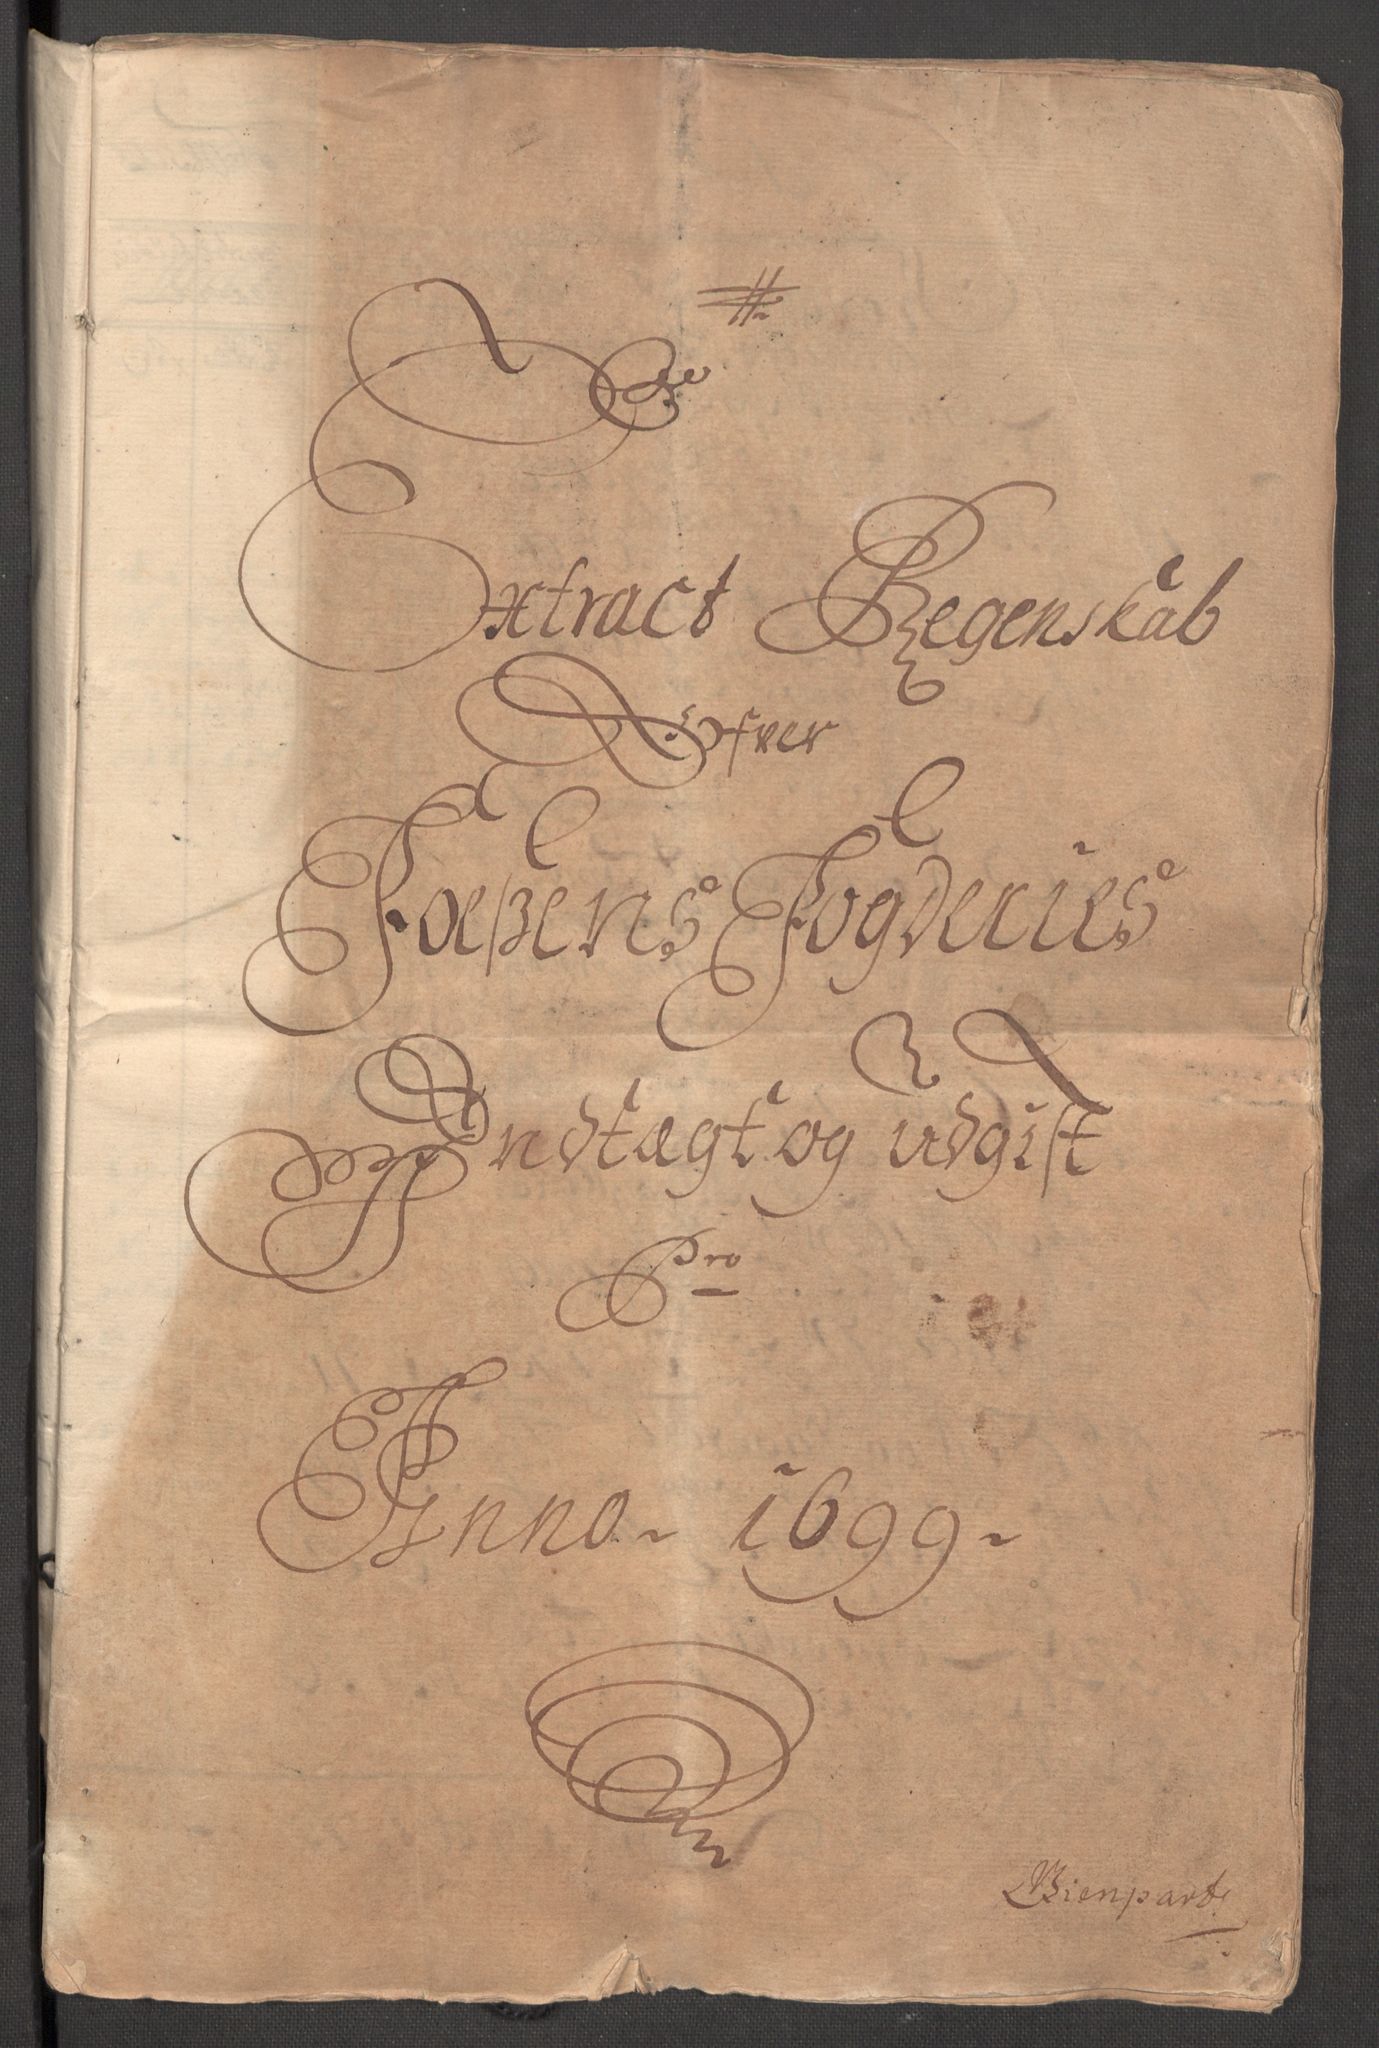 Extract Regenskab
Ofver
Foeßens Fogderies
Indtægt og udgift
Pro
Anno 1699
Bienpart